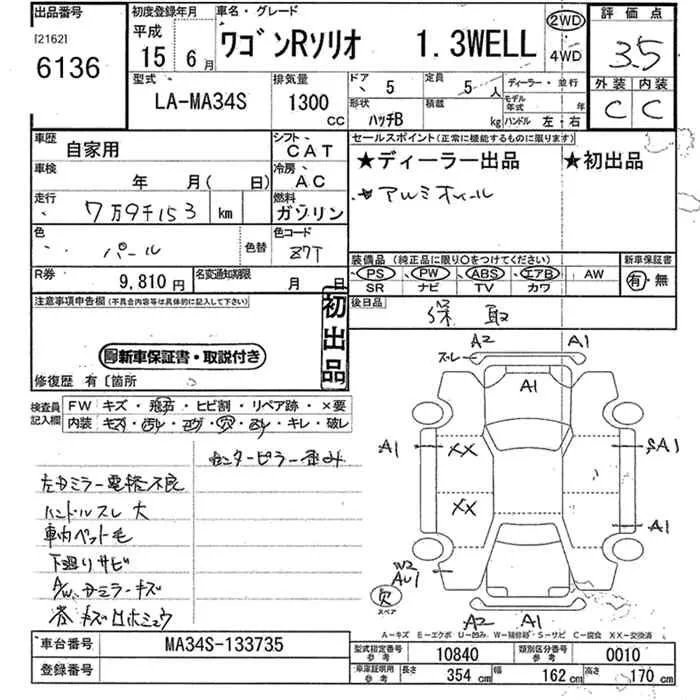 出品番号 初度登録年月 車名・グレード 2WD 評価点
[2162] 平成 ワゴンRソリオ 1.3WELL 3.5
6136 15年 6月 4WD
型式 排気量 ドア 5 定員 5人 ディーラー・並行 外装 内装
LA-MA34S 1300 CC 形状 ハッチB 積載 kg モデル年式 年 C C
ハンドル 左・右
車歴 自家用 シフト CAT セールスポイント(正常に機能するものに限ります)
★ディーラー出品 ★初出品
車検 年 月( 日) 冷房 AC
アルミホイール
走行 7万9千153 km 燃料 ガソリン
色 パール 色替 色コード Z7T
装備品(純正品に限り○をつけてください) 新車保証書
PS PW ABS エアB AW 有・無
R券 9,810円 名変通知期限 月 日 SR ナビ TV カワ
注意事項申告欄(不具合内容等は具体的に記入して下さい) 初出品 後日品 保 取
新車保証書・取説付き
修復歴 有〔箇所
検査員記入欄 FW キズ・飛石・ヒビ割・リペア跡・×要
内装 キズ・汚れ・コゲ・穴・スレ・キレ・破レ
センターピラー歪み
左ドミラー電格不良
ハンドルスレ大
車内ペット毛
下廻りサビ
A/W、ドミラーキズ
スレ A2 A1
A1
A1 XX SA1
XX A1
W2
AU1
欠 スペア
A2 A1
A-キズ E-エクボ U-凹み W-補修跡 S-サビ C-腐食 XX-交換済
車台番号 MA34S-133735 型式指定番号 参考 10840 類別区分番号 参考 0010
登録番号 車庫証明用 参考 長さ 354 cm 幅 162 cm 高さ 170 cm